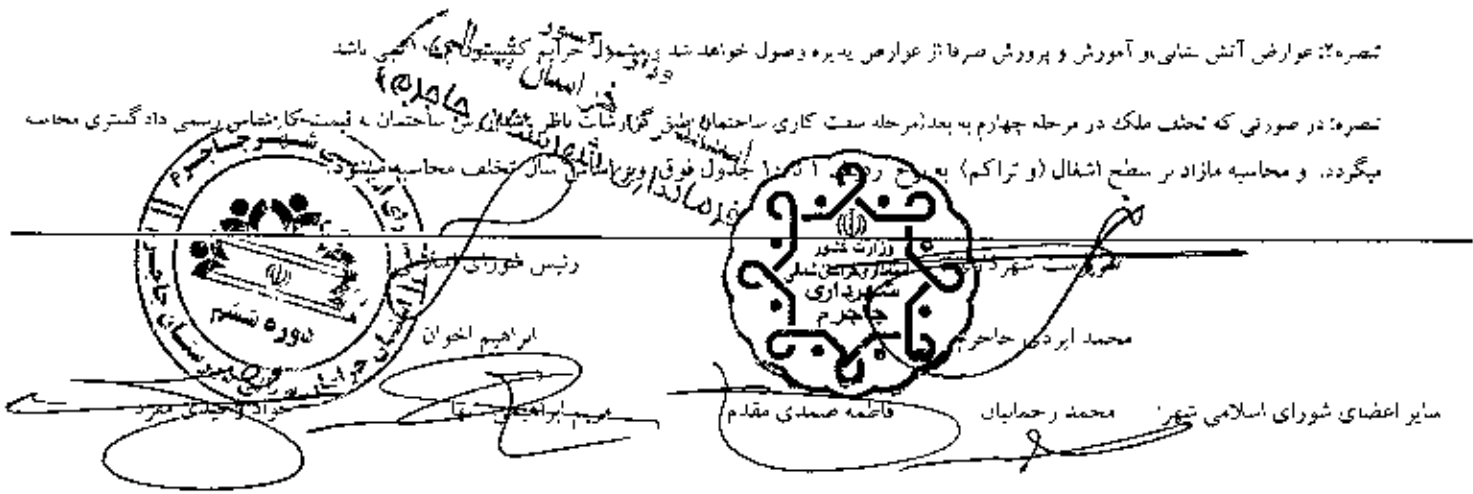 تبصره۲: عوارض آتش نشانی و آموزش و پرورش صرفا از عوارض پذیره وصول خواهد شد و مشمول جرایم کمیسیون نمی باشد
تبصره: در صورتی که تخلف ملک در مرحله چهارم به بعد(مرحله سفت کاری ساختمان طبق گزارشات ناظر باشد ارزش ساختمان به قیمت کارشناس رسمی دادگستری محاسبه
میگردد. و محاسبه مازاد بر سطح اشغال (و تراکم) به شرح ردیف ۱ تا ۱۰ جدول فوق و بر اساس سال تخلف محاسبه میشود.
وزارت کشور
خراسان
فرمانداری شهرستان جاجرم
سرپرست شهرداری
رئیس شورای اسلامی
وزارت کشور
استانداری خراسان شمالی
شهرداری
جاجرم
دوره ششم
محمد ایزدی جاجرم
ابراهیم اخوان
سایر اعضای شورای اسلامی شهر: محمد رحمانیان فاطمه صمدی مقدم مریم ابراهیمی جواد